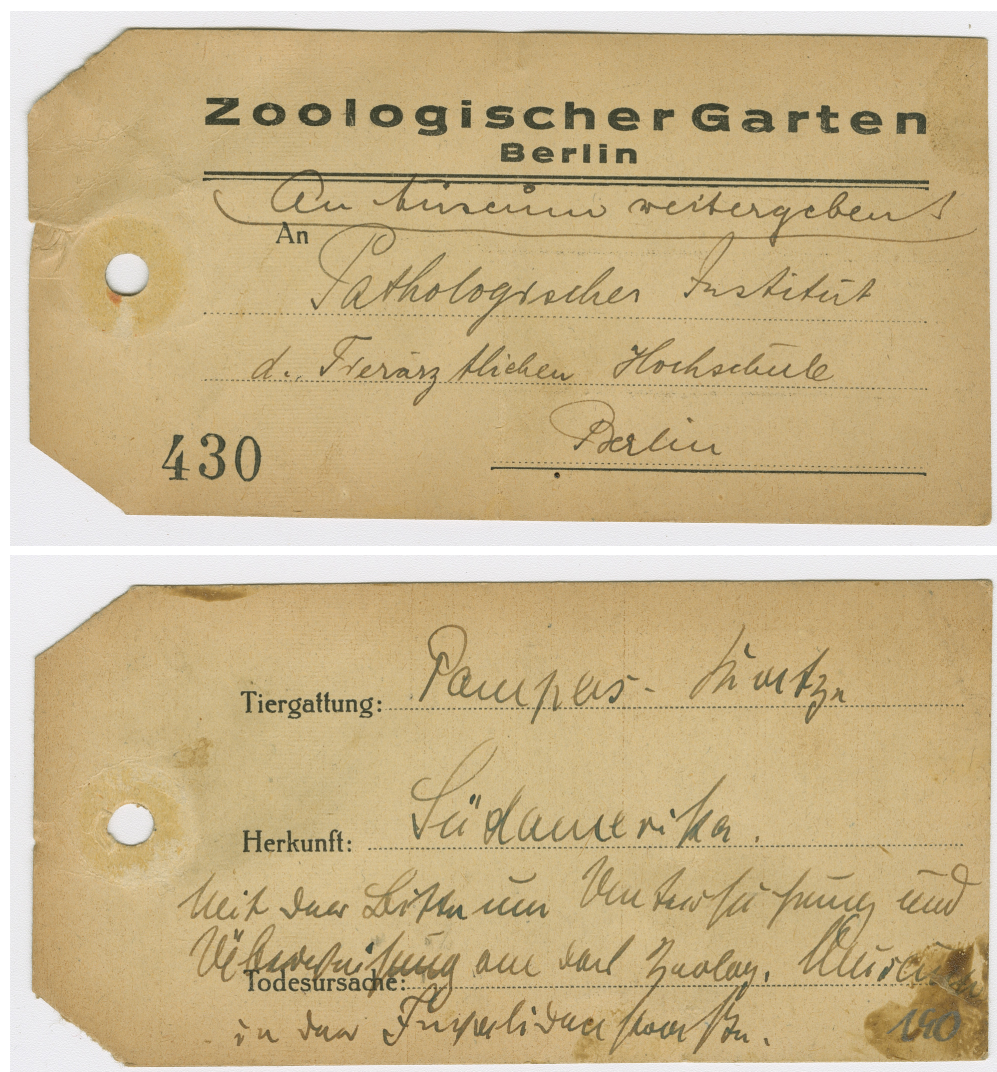 Zoologischer Garten
Berlin
An Museum weitergeben!
An
Pathologisches Institut
d. Tierärztlichen Hochschule
Berlin
430
Tiergattung: Pampas-Katze
Herkunft: Südamerika.
Mit der Bitte um Untersuchung und
Überweisung an das Zoolog. Museum
Todesursache:
in der Invalidenstraße.
190